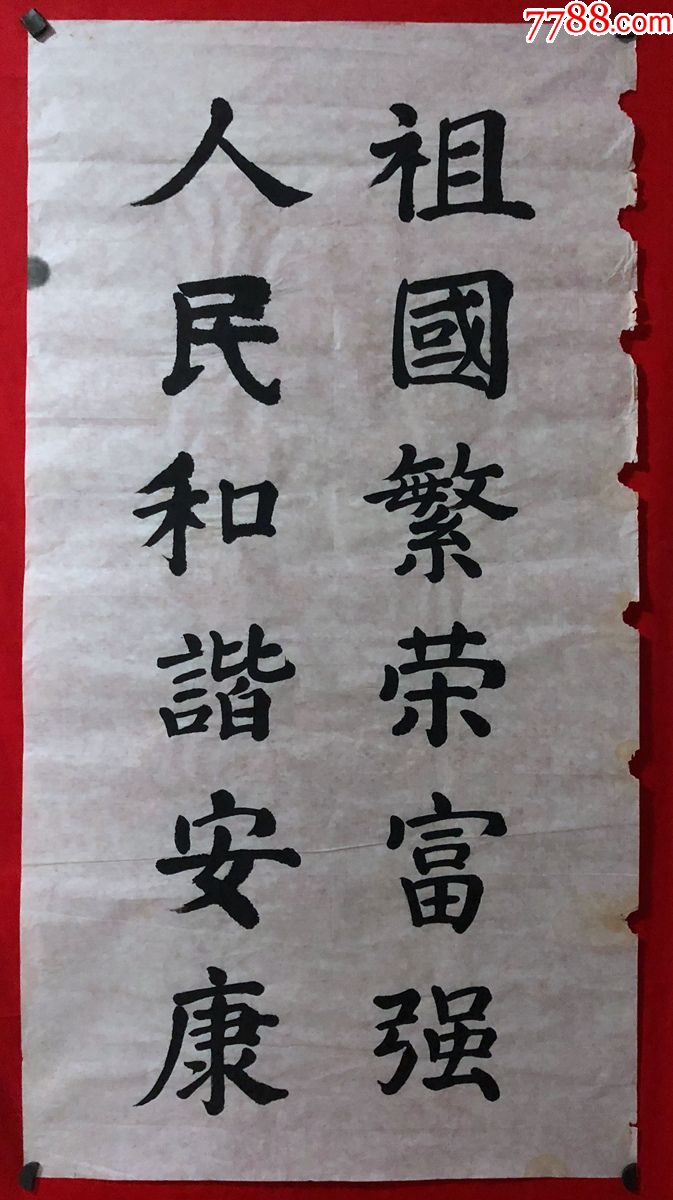 7788.com
祖國繁荣富强
人民和諧安康